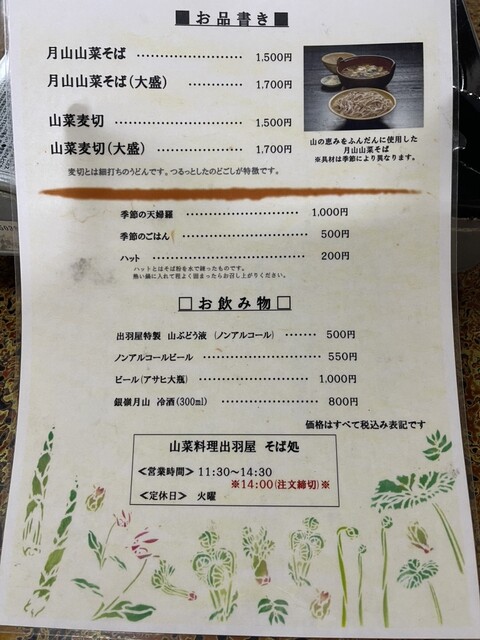 ■お品書き■
月山山菜そば ………………… 1.500円
月山山菜そば(大盛) ………… 1.700円
山菜麦切 ………………… 1.500円
山菜麦切(大盛) ………… 1.700円
麦切とは細打ちのうどんです。つるっとしたのどごしが特徴です。
山の恵みをふんだんに使用した
月山山菜そば
※具材は季節により異なります。
季節の天婦羅 ………………… 1.000円
季節のごはん ………………… 500円
ハット ………………… 200円
ハットとはそば粉を水で練ったものです。
熱い鍋に入れて程よく固まったらお召し上がりください。
□お飲み物□
出羽屋特製 山ぶどう液 (ノンアルコール) …… 500円
ノンアルコールビール ………………… 550円
ビール(アサヒ大瓶) ………………… 1.000円
銀嶺月山 冷酒(300ml) ………………… 800円
価格はすべて税込み表記です
山菜料理出羽屋 そば処
<営業時間> 11:30~14:30
※14:00(注文締切)※
<定休日> 火曜